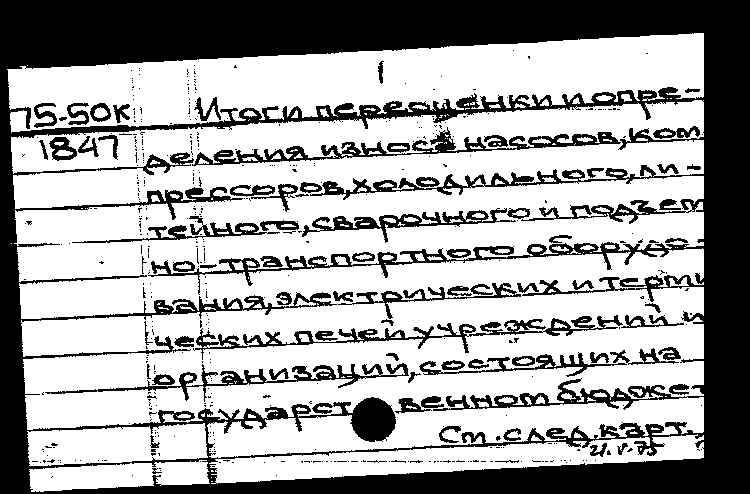 1
75-50к Итоги переоценки и опре-
1847 деления износа насосов, ком
прессоров, холодильного, ли-
тейного, сварочного и подъем
но-транспортного оборудо-
вания, электрических и терми
ческих печей учреждений и
организаций, состоящих на
государственном бюджет
См. след. карт.
21.V-75